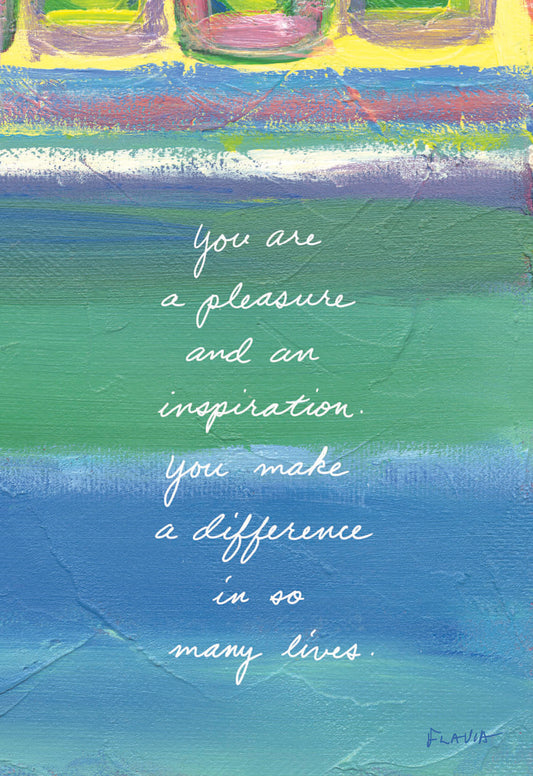 You are
a pleasure
and an
inspiration.
You make
a difference
in so
many lives.
FLAVIA